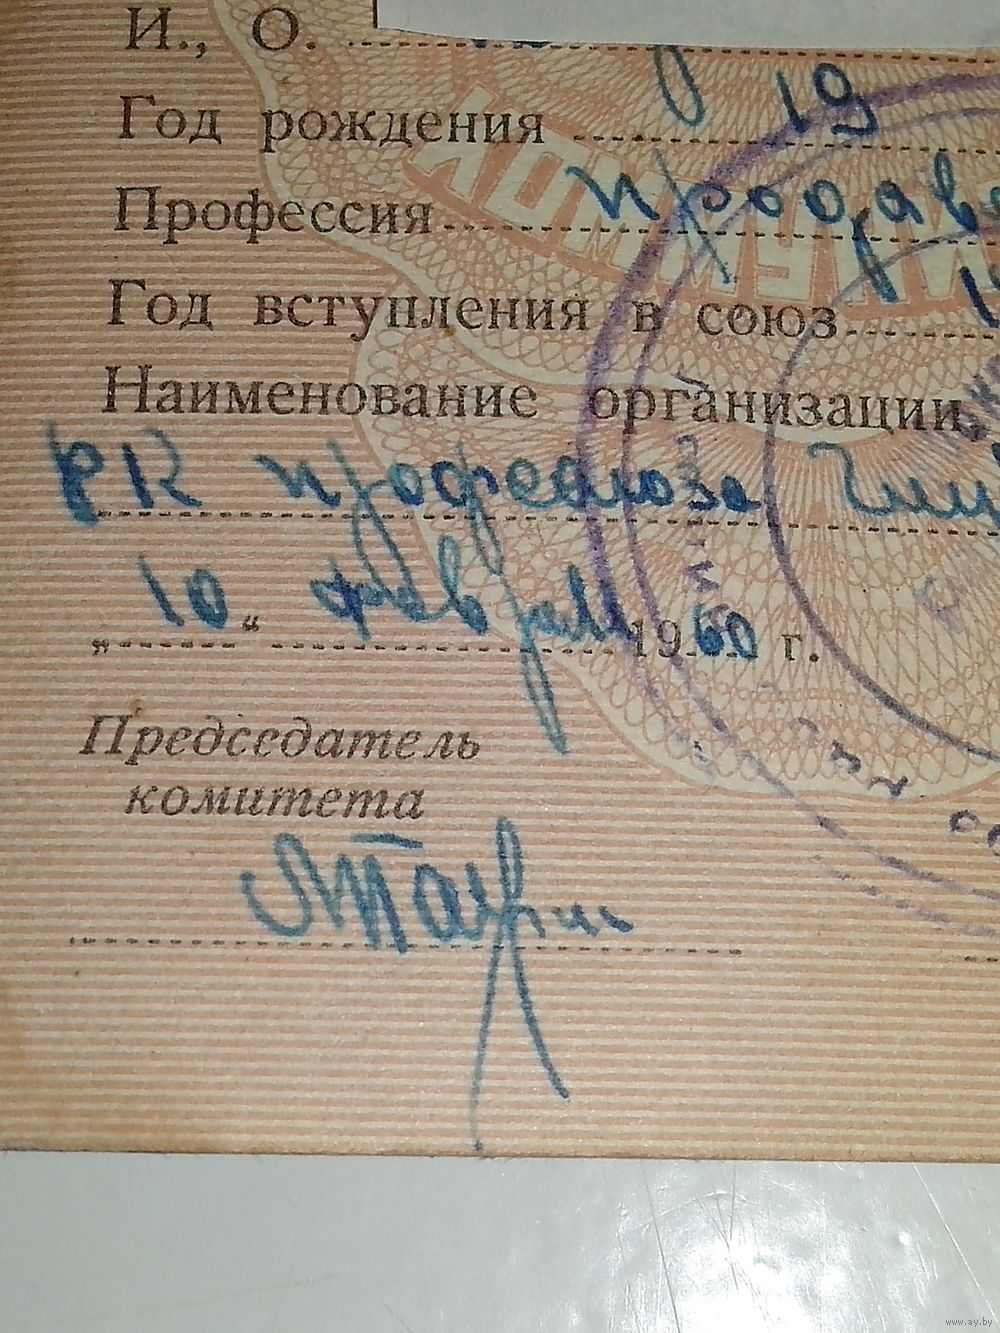 И., О.
Год рождения 19
Профессия продаве
Год вступления в союз
Наименование организации
РК профсоюза
„10“ февраля 1960 г.
Председатель
комитета
КОММУНИ
www.ay.by